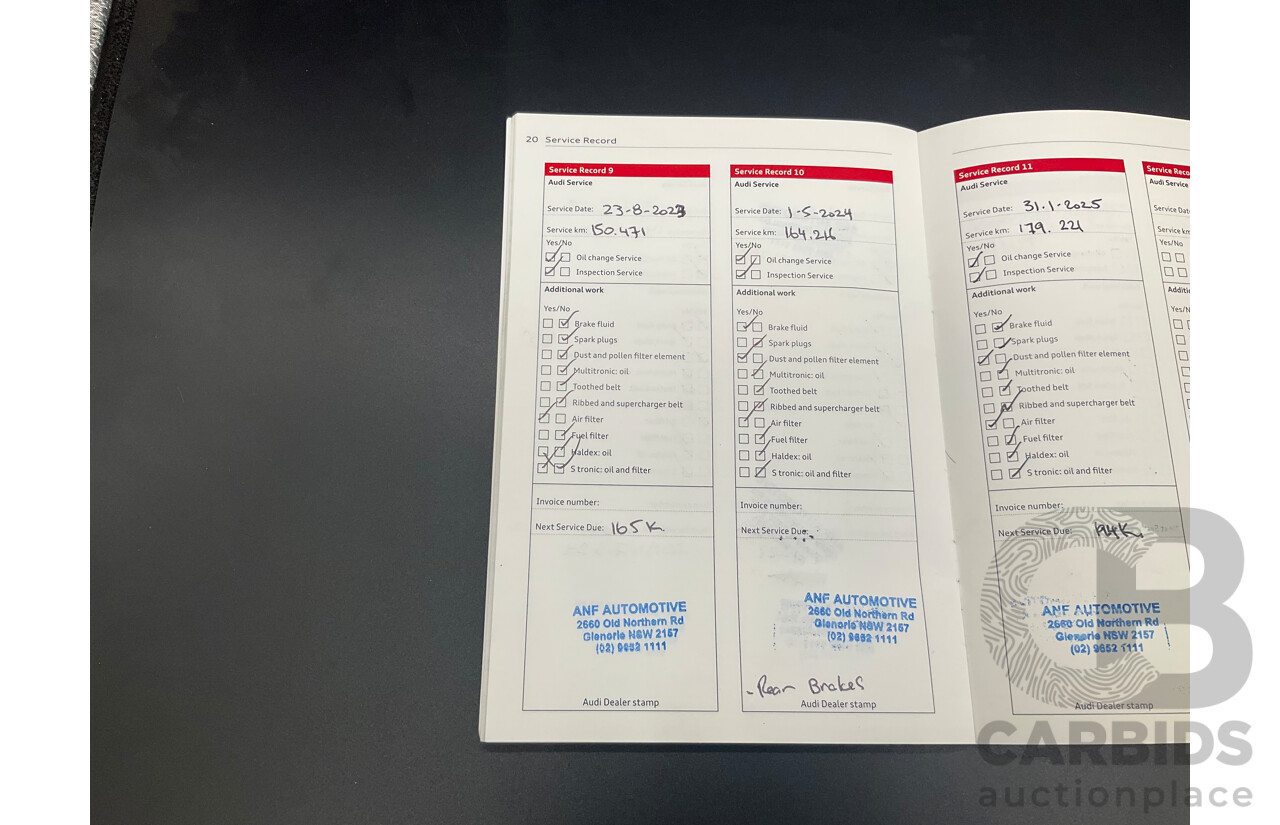 20 Service Record
Service Record 9
Audi Service
Service Date: 23-8-2023
Service km: 150.471
Yes/No
Oil change Service
Inspection Service
Additional work
Yes/No
Brake fluid
Spark plugs
Dust and pollen filter element
Multitronic: oil
Toothed belt
Ribbed and supercharger belt
Air filter
Fuel filter
Haldex: oil
S tronic: oil and filter
Invoice number:
Next Service Due: 165K.
ANF AUTOMOTIVE
2660 Old Northern Rd
Glenorie NSW 2157
(02) 9652 1111
Audi Dealer stamp
Service Record 10
Audi Service
Service Date: 1-5-2024
Service km: 164.216
Yes/No
Oil change Service
Inspection Service
Additional work
Yes/No
Brake fluid
Spark plugs
Dust and pollen filter element
Multitronic: oil
Toothed belt
Ribbed and supercharger belt
Air filter
Fuel filter
Haldex: oil
S tronic: oil and filter
Invoice number:
Next Service Due:
ANF AUTOMOTIVE
2660 Old Northern Rd
Glenorie NSW 2157
(02) 9652 1111
- Rear Brakes
Audi Dealer stamp
Service Record 11
Audi Service
Service Date: 31.1.2025
Service km: 179.221
Yes/No
Oil change Service
Inspection Service
Additional work
Yes/No
Brake fluid
Spark plugs
Dust and pollen filter element
Multitronic: oil
Toothed belt
Ribbed and supercharger belt
Air filter
Fuel filter
Haldex: oil
S tronic: oil and filter
Invoice number:
Next Service Due: 194K.
ANF AUTOMOTIVE
2660 Old Northern Rd
Glenorie NSW 2157
(02) 9652 1111
Audi Dealer stamp
Service Reco
Audi Service
Service Dat
Service km
Yes/No
Additi
Yes/N
CB
CARBIDS
auctionplace